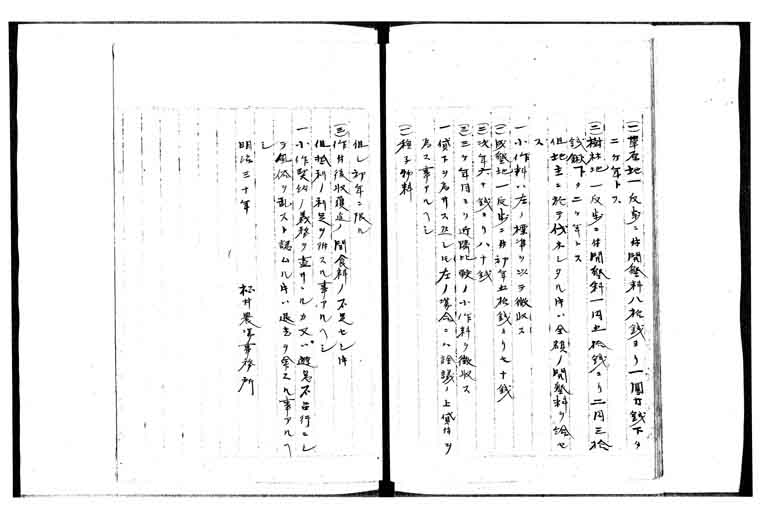 (一)草原地一反歩ニ付開墾料八拾銭ヨリ一圓廿銭下ヶ
二ヶ年トス
(二)樹林地一反歩ニ付開墾料一円五拾銭ヨリ二円三拾
銭鍬下ヶ二ヶ年トス
但地主ニ於テ伐木シタル時ハ全額ノ開墾料ヲ給セ
ス
一小作料ハ左ノ標準ヲ以テ徴収ス
(一)成墾地一反歩ニ付初年五拾銭ヨリ七十銭
(二)次年六十銭ヨリ八十銭
(三)三ヶ年目ヨリ近隣比較ノ小作料ヲ徴収ス
一貸下ヲ為サス然レトモ左ノ場合ニハ詮議ノ上貸付ヲ
為ス事アルヘシ
(一)種子物料
但シ初年ニ限ル
(三)作付後収穫迄ノ間食料ノ不足セシ時
但抵利ノ利足ヲ附スル事アルヘシ
一小作契約ノ義務ヲ盡サヽルカ又ハ遊怠不品行ニシ
テ風俗ヲ乱スト認ムル時ハ退去ヲ命スル事アルヘ
シ
明治三十年
松井農場事務所